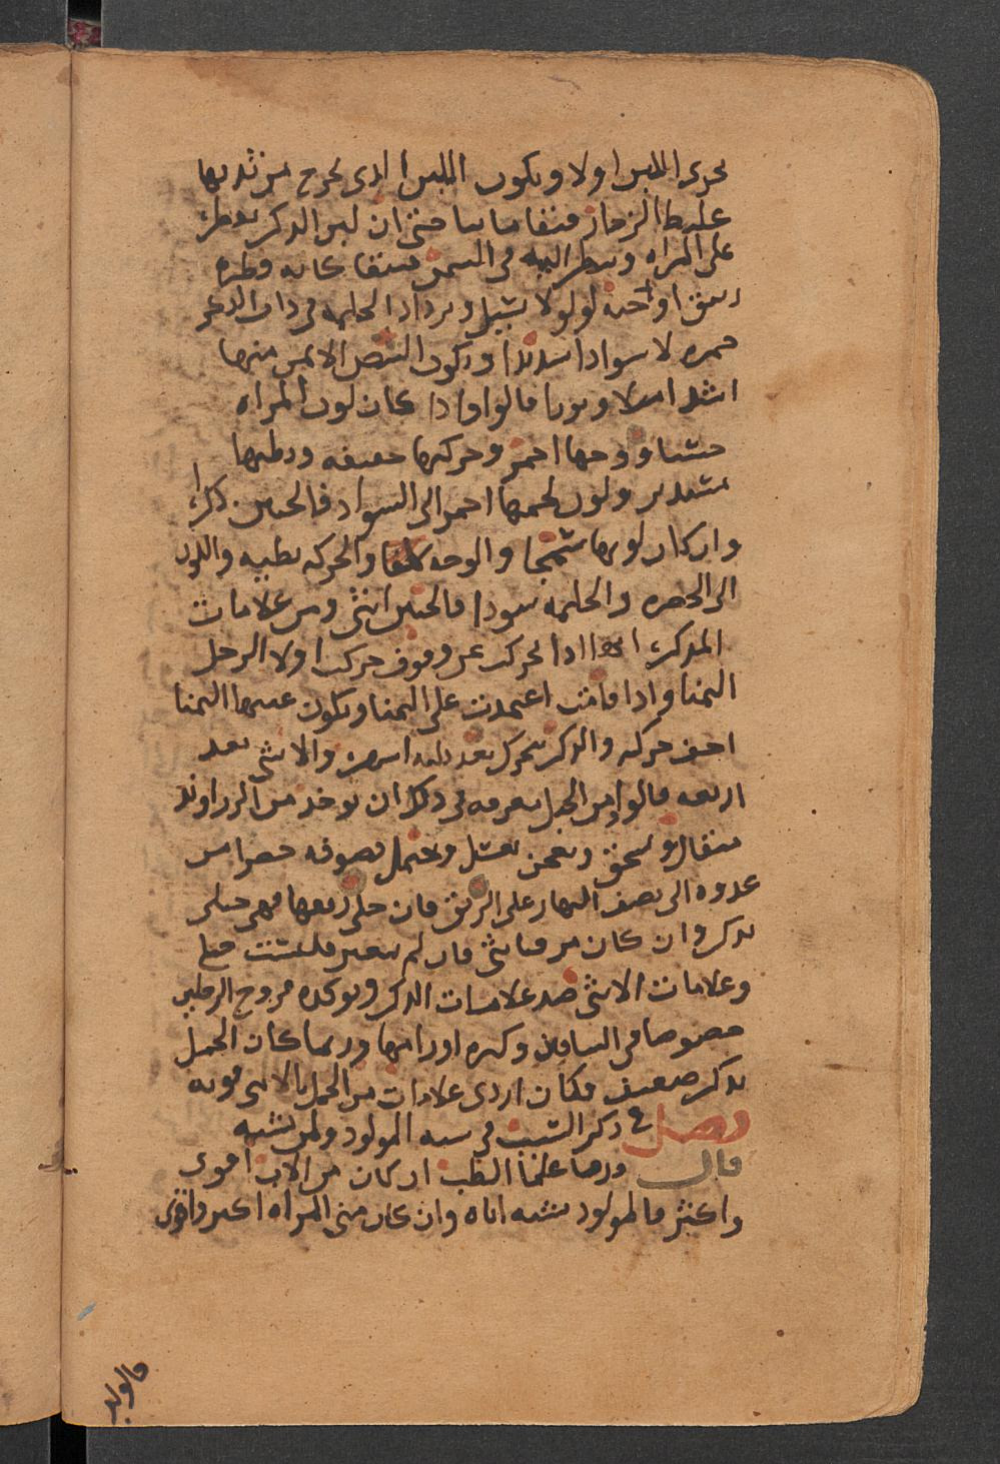 يجري اللبن اولا ويكون اللبن الذي يخرج من ثديها
غليظ الزجاز متفاماىىا حتى ان لبن الذكر يقطر
على المراه وينظر اليه في الشمس فيبقا كانه قطره
زيبق او حبه لولو لا يسيل ويزداد الحلمه في ذات الذكر
حمره لا سوادا شديدا ويكون النبض الايمن منها
اشد امتلا وتوترا قالوا واذا كان لون المراه
حسنا ووجهها احمر وحركتها خفيفه وبطنها
مستدير ولون لحمها احمر الى السواد فالجنين ذكرا
وان كان لونها سمجا والوجه كلفا والحركه بطيه واللون
الى الخضره والحلمه سودا فالجنين انثى ومن علامات
المذكر انها اذا تحركت عن وقوف حركت اولا الرجل
اليمنا واذا قامت اعتمدت على اليمنا ويكون عينها اليمنا
اخف حركه والذكر يتحرك بعد ثلثه اشهر والانثى بعد
اربعه قالوا ومن الحيل بمعرفه في ذلك ان يوخذ من الزراوند
مثقال ويسحق ويعجن بعسل وتحتمل بصوفه خضرا من
غدوه الى نصف النهار على الريق فان حلى ريقها فهي حبلى
بذكر وان كان مر فبانثى فان لم يتغير فليست حبلى
وعلامات الانثى ضد علامات الذكر ويوكده قروح الرجلين
خصوصا في الساقين وكثره اورامها وربما كان الحمل
بذكر ضعيف فكان اردى علامات من الحمل بالانثى قويه
فصل في ذكر السبب في شبه المولود ولمن يشبه
قال ورصا علما الطب ان كان من الاب اقوى
واكثر فالمولود يشبه اباه وان كان مني المراه اكثر واقوى
فالولد